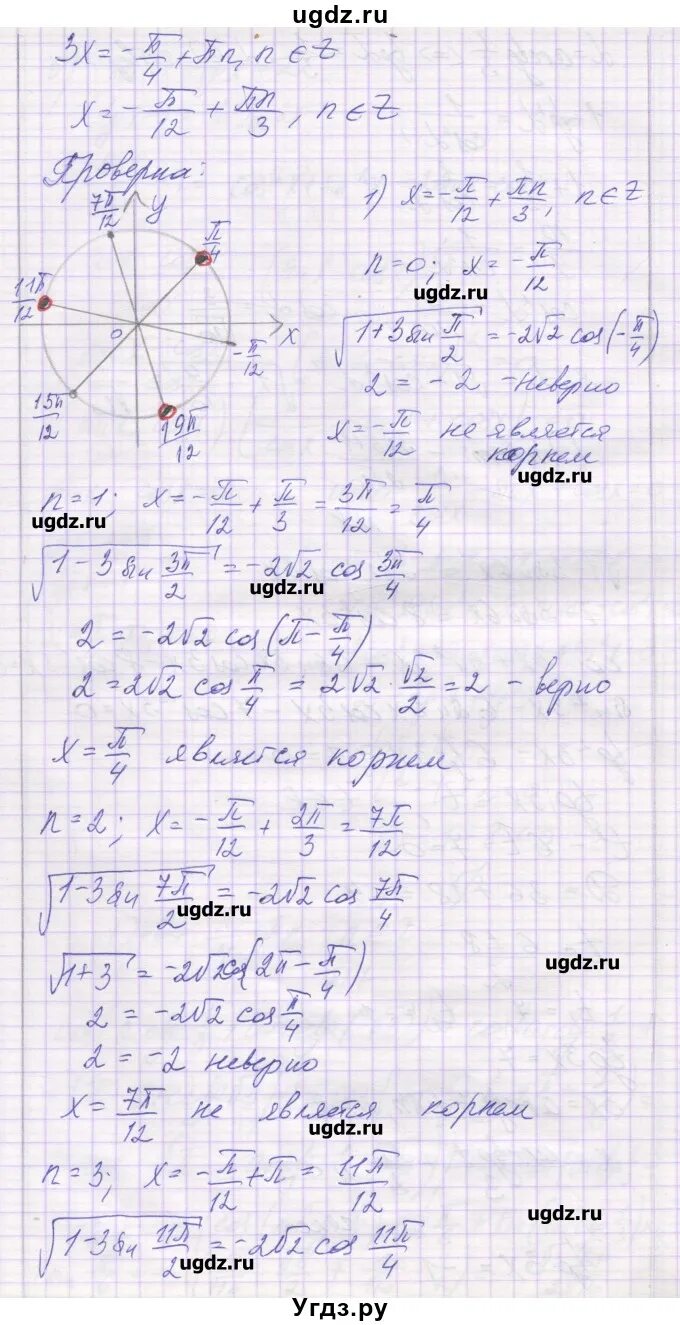 ugdz.ru
3x = -π/4 + πn, n ∈ Z
x = -π/12 + πn/3, n ∈ Z
Проверка:
7π/12
y
π/4
11π/12
0
x
-π/12
15π/12
19π/12
1) x = -π/12 + πn/3, n ∈ Z
n = 0; x = -π/12
ugdz.ru
√(1+3 sin π/2) = -2√2 cos(-π/4)
2 = -2 - неверно
x = -π/12 не является
корнем
ugdz.ru
n = 1; x = -π/12 + π/3 = 3π/12 = π/4
ugdz.ru
√(1-3 sin 3π/2) = -2√2 cos 3π/4
ugdz.ru
2 = -2√2 cos(π - π/4)
2 = 2√2 cos π/4 = 2√2 · √2/2 = 2 - верно
x = π/4 является корнем
n = 2; x = -π/12 + 2π/3 = 7π/12
√(1-3 sin 7π/2) = -2√2 cos 7π/4
ugdz.ru
√(1+3) = -2√2 cos(2π - π/4)
ugdz.ru
2 = -2√2 cos π/4
2 = -2 неверно
x = 7π/12 не является корнем
ugdz.ru
n = 3; x = -π/12 + π = 11π/12
ugdz.ru
√(1-3 sin 11π/2) = -2√2 cos 11π/4
ugdz.ru
Угдз.ру